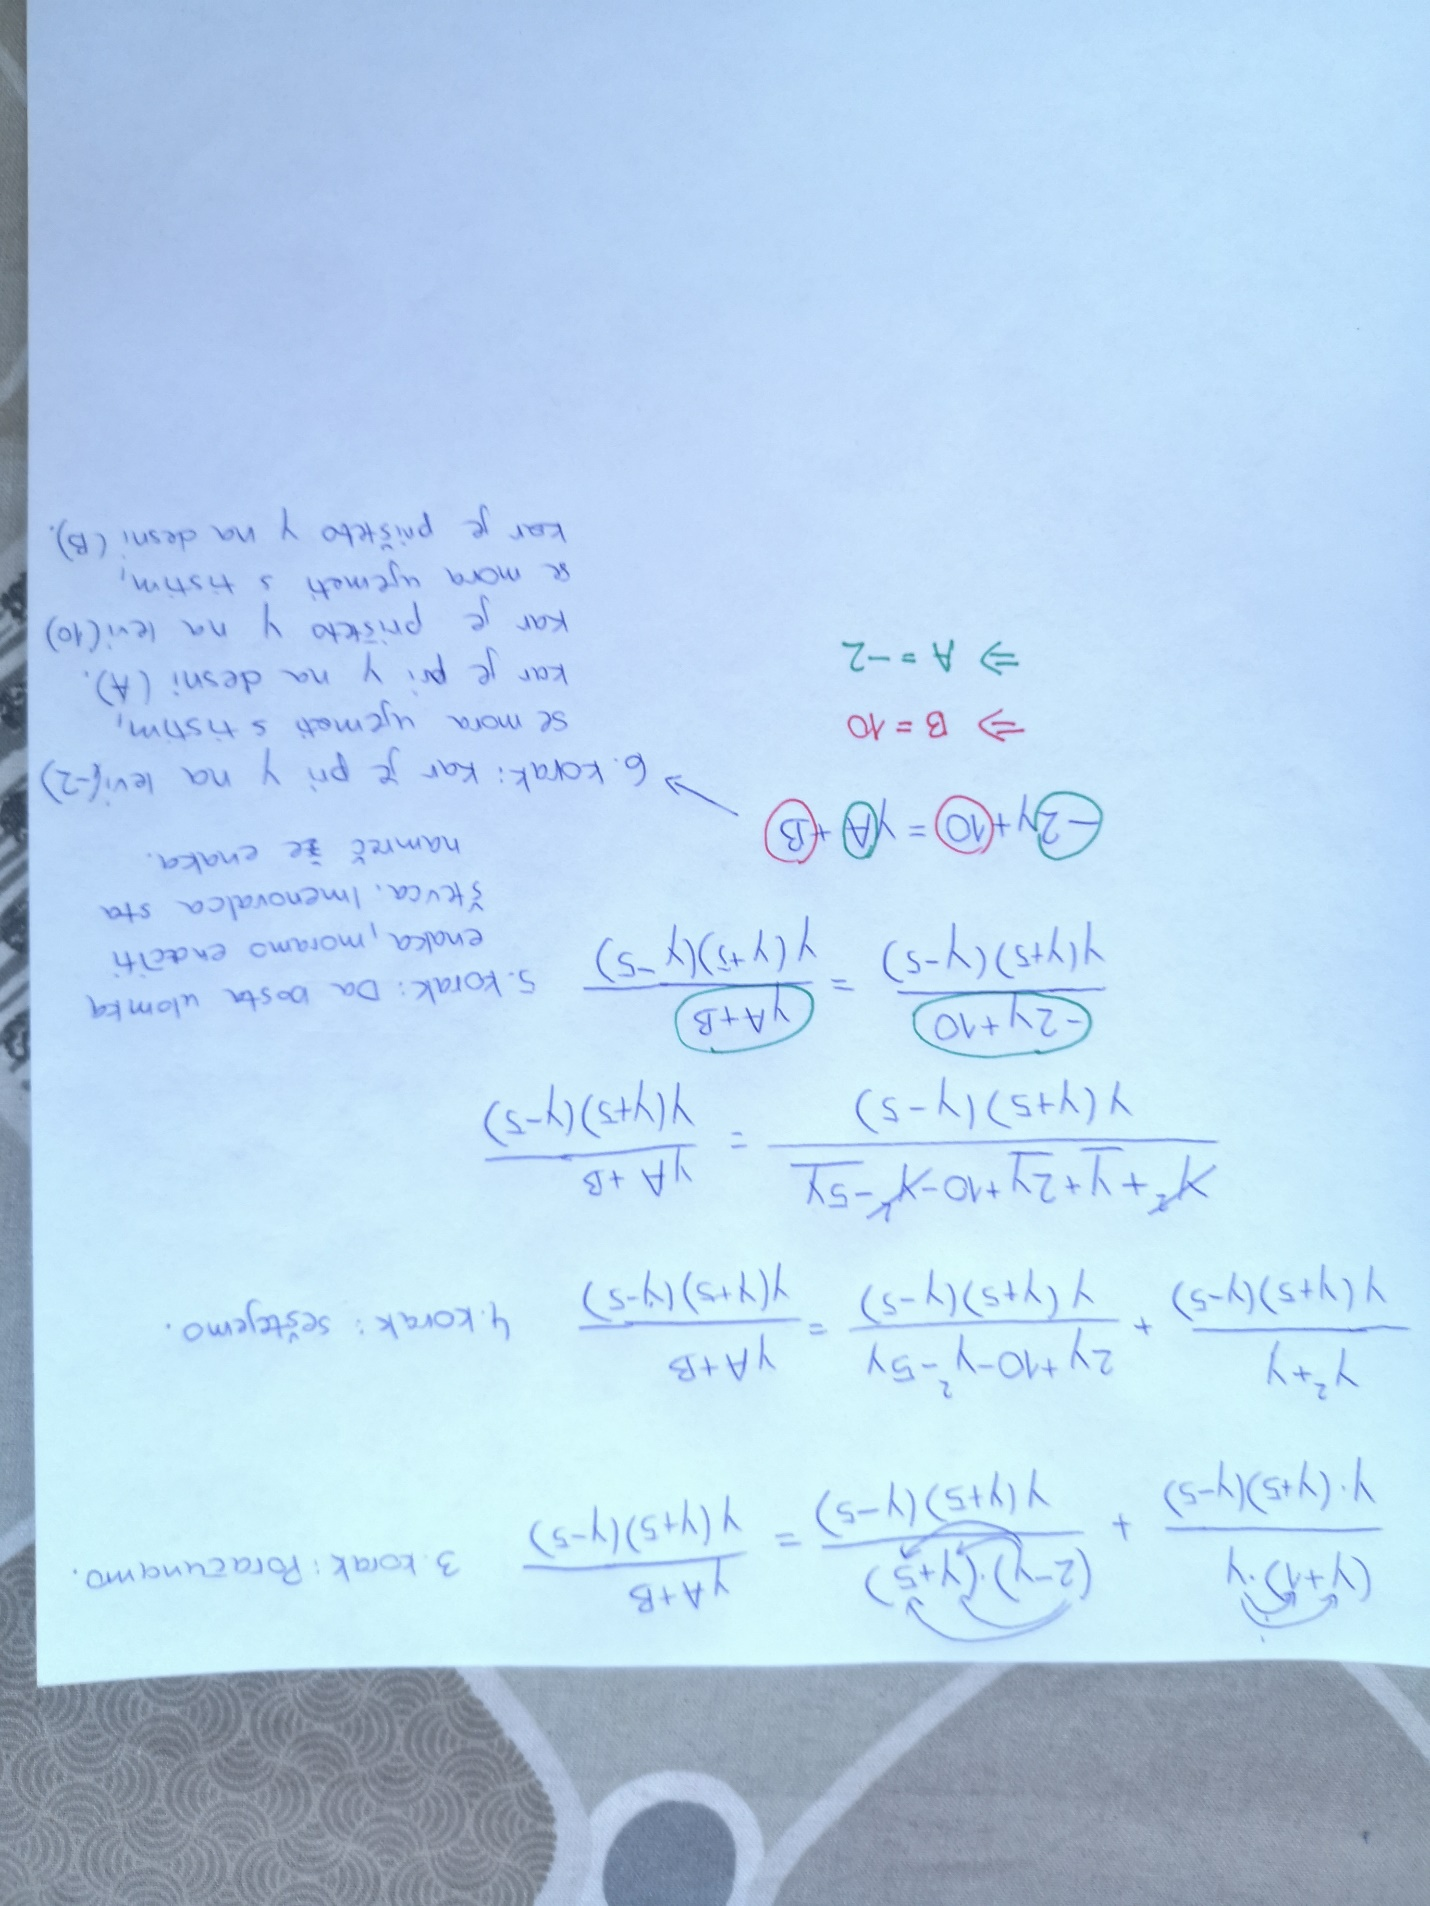 (y+1)·y / y·(y+5)(y-5) + (2-y)·(y+5) / y(y+5)(y-5) = yA+B / y(y+5)(y-5) 3. korak: Poračunamo.
y²+y / y(y+5)(y-5) + 2y+10-y²-5y / y(y+5)(y-5) = yA+B / y(y+5)(y-5) 4. korak: seštejemo.
y²+y+2y+10-y²-5y / y(y+5)(y-5) = yA+B / y(y+5)(y-5)
-2y+10 / y(y+5)(y-5) = yA+B / y(y+5)(y-5)
5. korak: Da bosta ulomka
enaka, moramo enačiti
števca. Imenovalca sta
namreč že enaka.
-2y+10 = yA+B
6. korak: kar je pri y na levi(-2)
se mora ujemati s tistim,
kar je pri y na desni (A).
kar je prišteto y na levi(10)
se mora ujemati s tistim,
kar je prišteto y na desni (B).
⇒ B = 10
⇒ A = -2